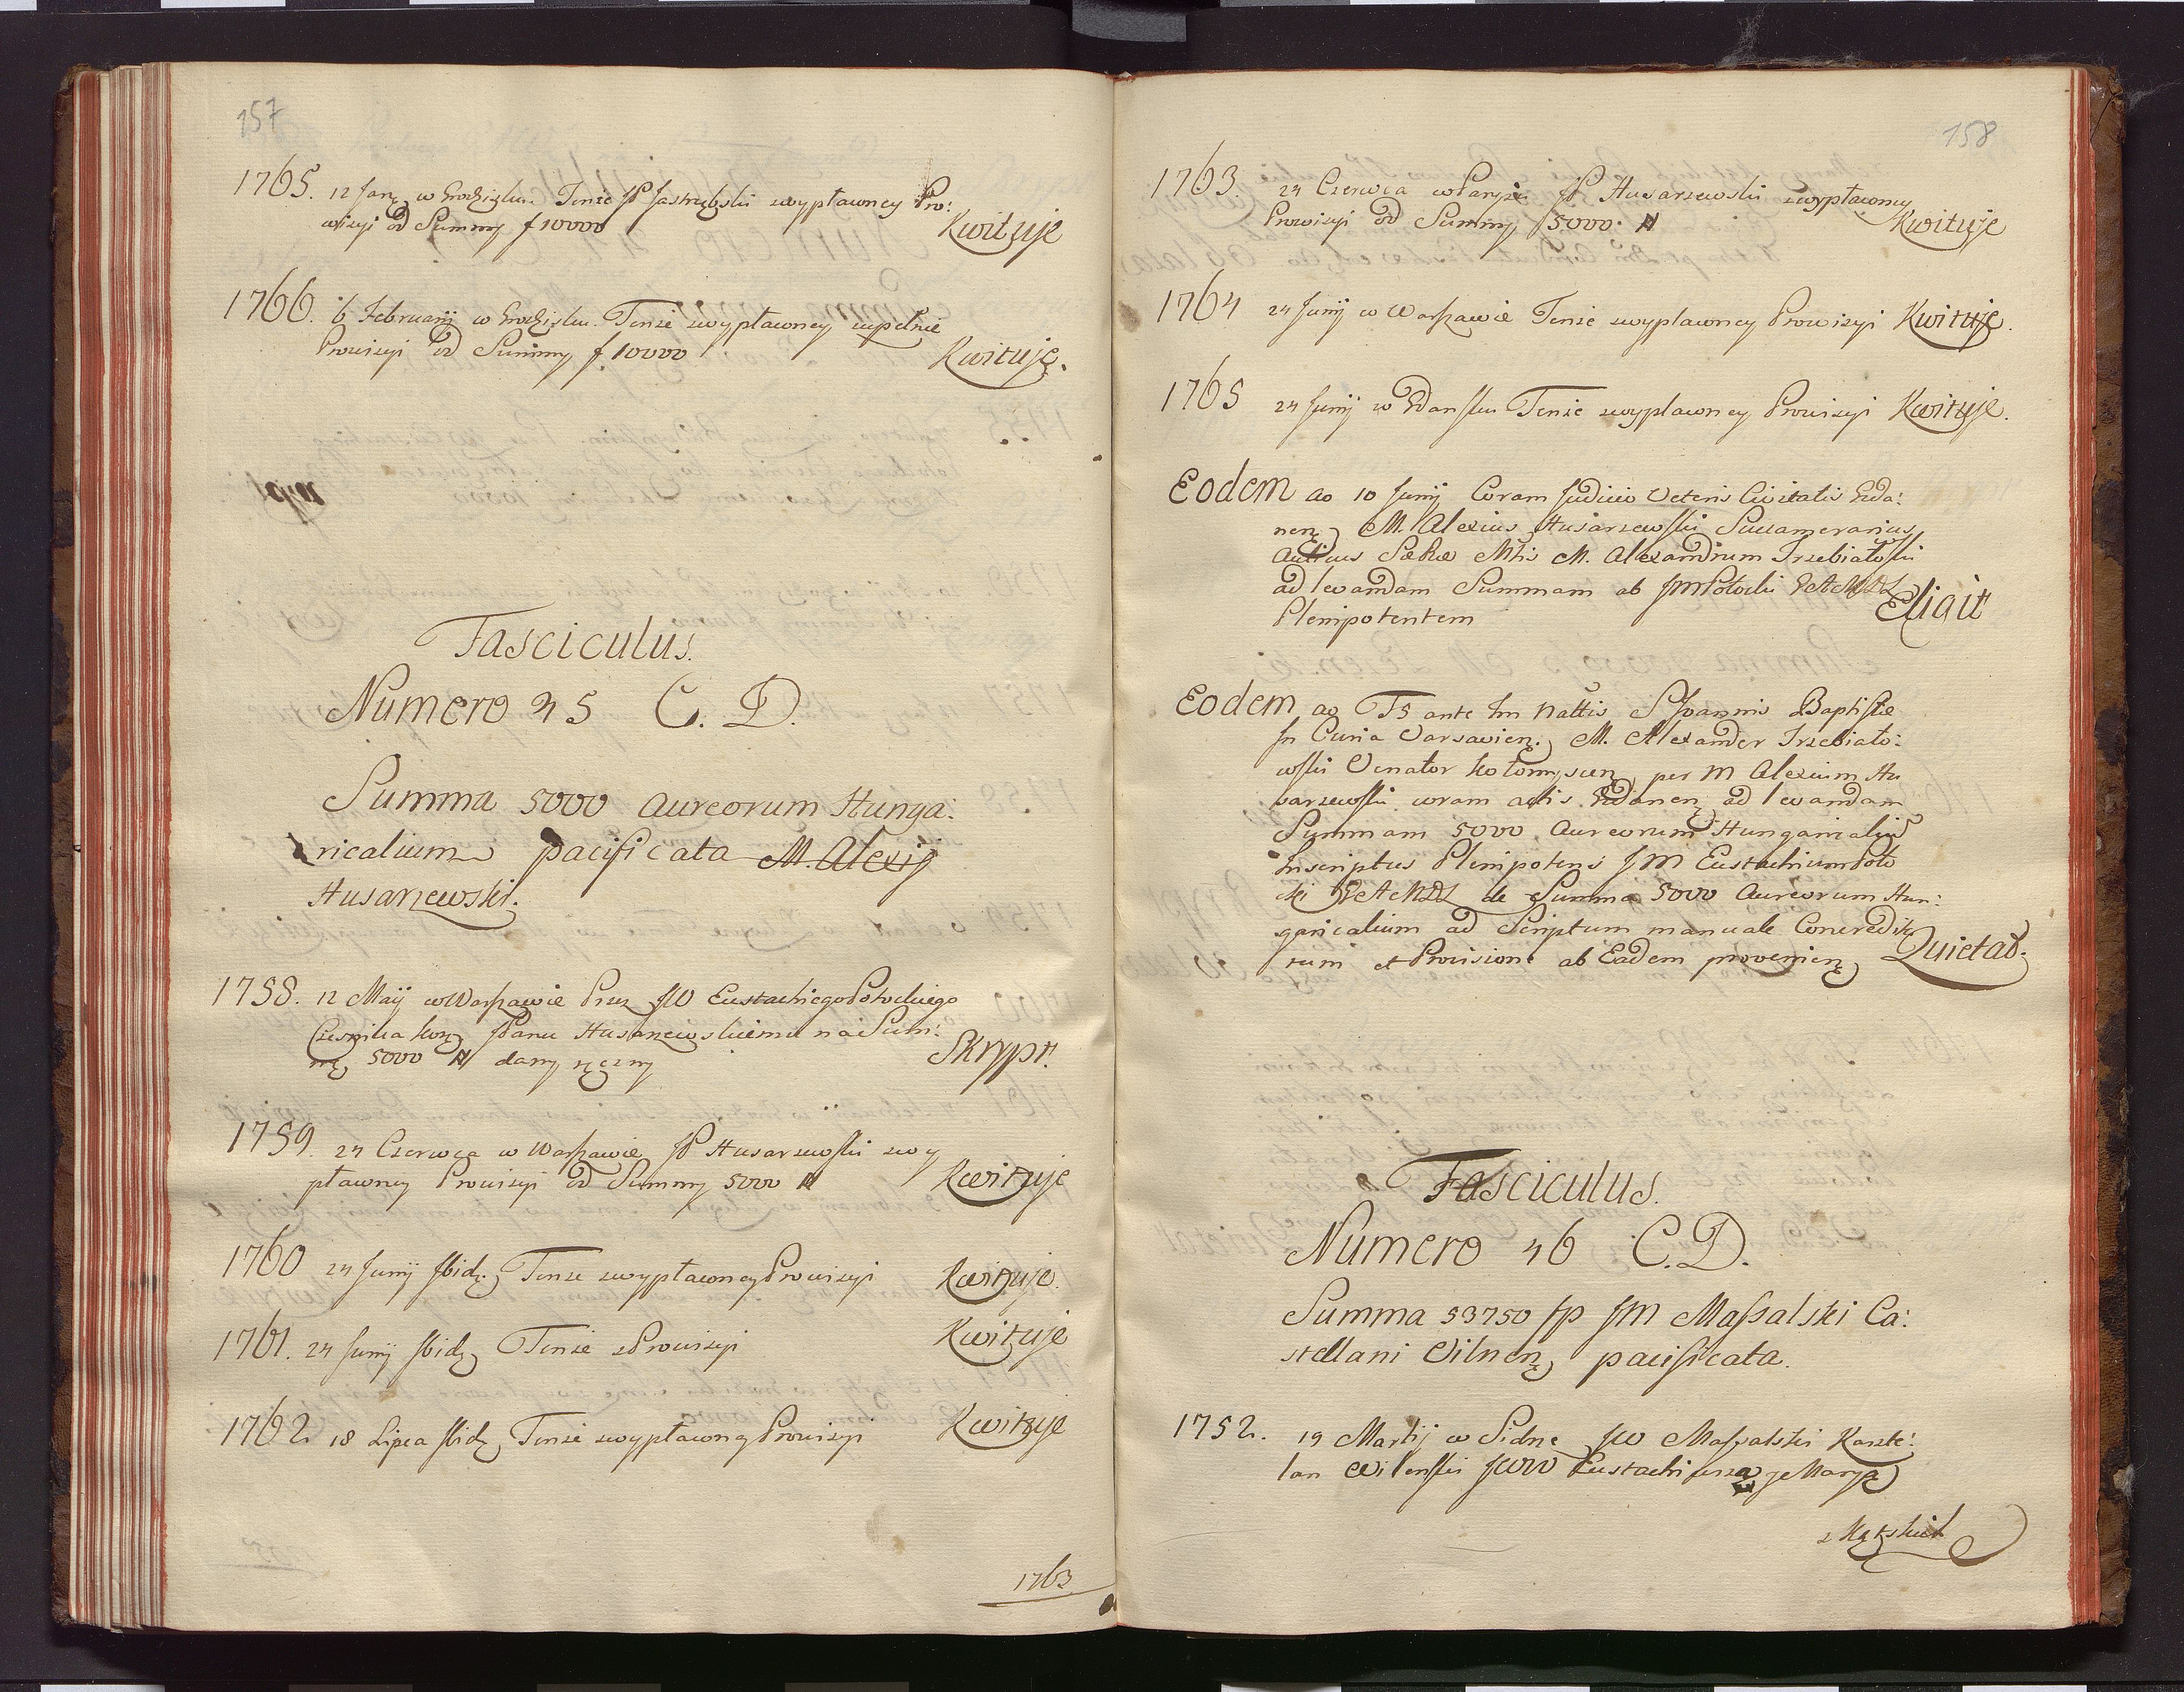 157
1765. 12 Jan. w Grodzisku. Tenże JP Jastrzębski z wypłaconey Pro:
wizyi od Summy f 10000 Kwituje
1766. 6 Februarij w Grodzisku. Tenże z wypłaconey zupełnie
Prowizyi od Summy f. 10000 Kwituję.
Fasciculus.
Numero 45 C. D.
Summa 5000 Aureorum Hunga:
ricalium pacificata M. Alexij
Husarzewski.
1758. 12 Maij w Warszawie Przez JW Eustachiego Potockiego
Cześnika Kor. JPanu Husarzewskiemu na Sum:
mę 5000 # dany ręczny Skrypt.
1759. 24 Czerwca w Warszawie JP Husarzewski z wy
płaconey Prowizyi od Summy 5000 # Kwituje
1760 24 Junij Ibid. Tenże z wypłaconey Prowizyi Kwituje.
1761. 24 Junij Ibid. Tenże z Prowizyi Kwituje
1762. 18 Lipca Ibid. Tenże z wypłaconey Prowizyi Kwituje
1763
158
1763. 24 Czerwca w Paryżu JP Husarzewski z wypłaconey
Prowizyi od Summy 5000 # Kwituje
1764 24 Junij w Warszawie Tenże z wypłaconey Prowizyi Kwituje.
1765 24 Junij w Gdansku Tenże z wypłaconey Prowizyi Kwituje.
Eodem ao 10 Junij Coram Judicio Veteris Civitatis Geda:
nen. M. Alexius Husarzewski Succamerarius
Aulicus Sae Rae Mtis M. Alexandrum Trzebiatoski
ad levandam Summam ab JM Potocki GAMDL
Plenipotentem Eligit
Eodem ao F5 ante fm Nattis S Joannis Baptistae
In Curia Varsavien. M. Alexander Trzebiato:
wski Venator Kołomyscen. per M Alexium Hu
sarzewski coram actis Gedanen. ad levandam
Summam 5000 Aureorum Hungaricaliu
Inscriptus Plenipotens JM Eustachium Poto
cki GAMDL de Summa 5000 Aureorum Hun:
garicalium ad Scriptum manuale Concredito
rum et Provisione ab Eadem provenien. Quietat.
Fasciculus.
Numero 46 C. D.
Summa 53750 fp JM Massalski Ca:
stellani Vilnen. pacificata.
1752. 19 Martij w Sidrze JW Massalski Kaszte:
lan Wilenski JWW Eustachiusza y Maryę
z Kątskich